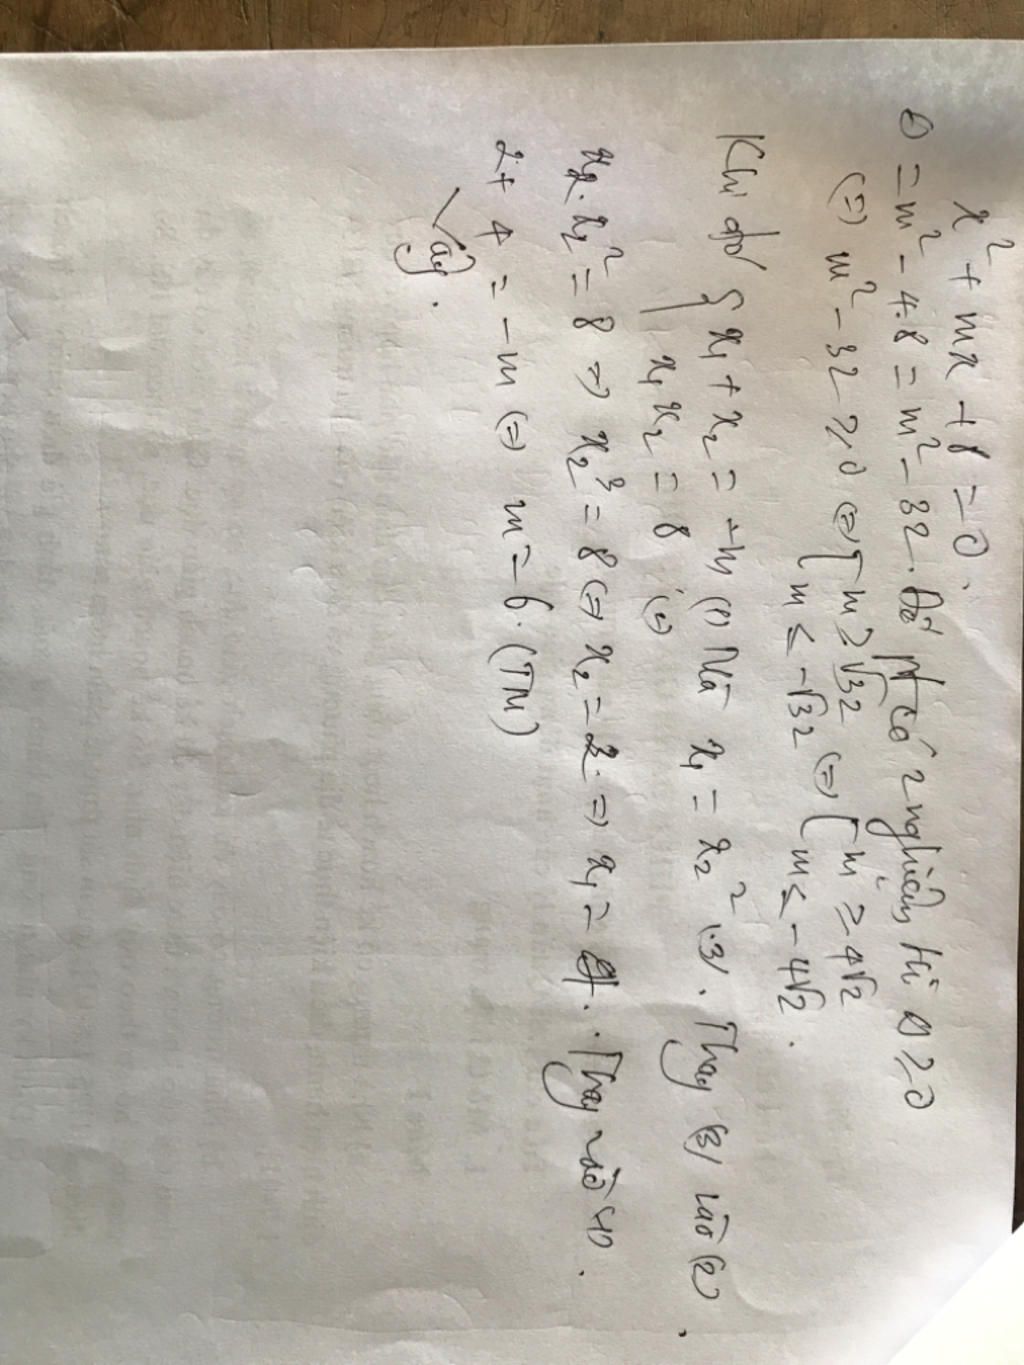 x² + mx + 8 = 0.
Δ = m² - 4.8 = m² - 32. Để pt có 2 nghiệm thì Δ ≥ 0
(=) m² - 32 ≥ 0 (=) [ m ≥ √32 (=) [ m ≥ 4√2
m ≤ -√32 m ≤ -4√2.
Khi đó { x₁ + x₂ = -m (1) Mà x₁ = x₂² (3). Thay (3) vào (2)
x₁x₂ = 8 (2)
x₂.x₂² = 8 => x₂³ = 8 (=) x₂ = 2. => x₁ = 4. Thay vào (1).
2 + 4 = -m (=) m = -6. (TM)
Vậy.